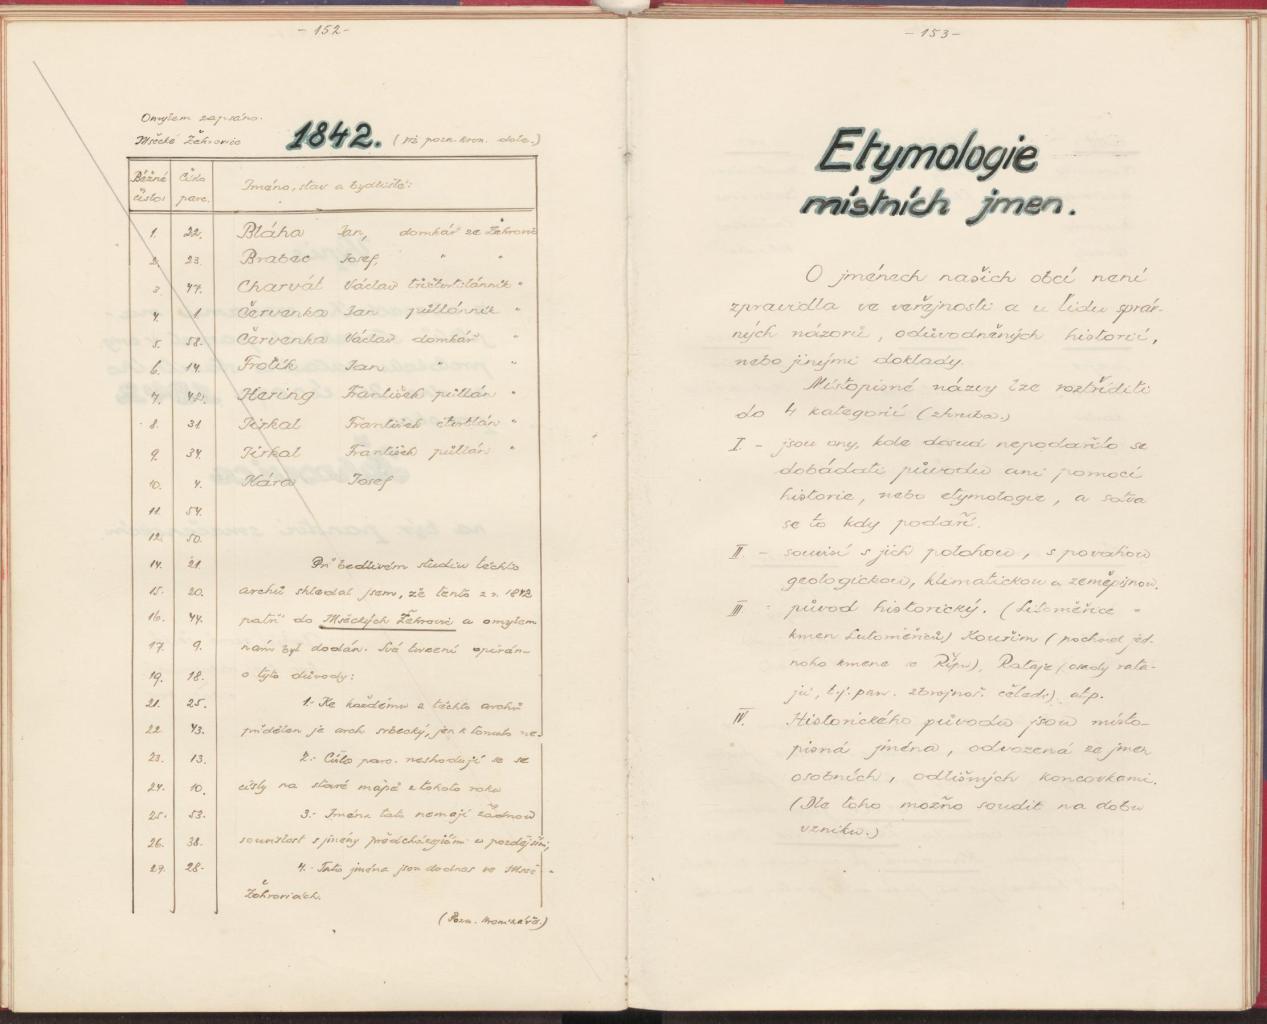 - 152 -
Omylem zapsáno.
Mšecké Žehrovice 1842. (viz pozn. kron. dole.)
Běžné číslo: Číslo parc. Jméno, stav a bydliště:
1. 22. Bláha Jan, domkář ze Žehrovic
2. 23. Brabec Josef, " "
3. 47. Charvát Václav tříčtvrtilánník "
4. 1 Červenka Jan půllánník "
5. 58. Červenka Václav domkář "
6. 14. Frolík Jan " "
7. 42. Hering František půllán "
8. 31 Jirkal František čtvrtlán "
9. 34. Jirkal František půllán "
10. 4. Kára Josef
11. 54.
12. 50.
14. 21. Při bedlivém studiu těchto
15. 20. archů shledal jsem, že tento z r. 1842
16. 44. patří do Mšeckých Žehrovic a omylem
17. 9. nám byl dodán. Své tvrzení opírám
19. 18. o tyto důvody:
21. 25. 1.- Ke každému z těchto archů
22. 43. přidělen je arch srbecký, jen k tomuto ne.
23. 13. 2.- Čísla parc. neshodují se se
24. 10. čísly na staré mapě z tohoto roku
25. 53. 3.- Jména tato nemají žádnou
26. 38. souvislost s jmény předcházejícími a pozdějšími,
27. 28. 4.- Tato jména jsou dodnes ve Mšec.
Žehrovicích.
(Pozn. kronikářův.)
- 153 -
Etymologie
místních jmen.
O jménech našich obcí není
zpravidla ve veřejnosti a u lidu správ-
ných názorů, odůvodněných historií,
nebo jinými doklady.
Místopisné názvy lze roztříditi
do 4 kategorií (zhruba.)
I - jsou ony, kde dosud nepodařilo se
dobádati původu ani pomocí
historie, nebo etymologie, a sotva
se to kdy podaří.
II - souvisí s jich polohou, s povahou
geologickou, klimatickou a zeměpisnou.
III - původ historický. (Litoměřice -
kmen Lutoměřců) Kouřim (pochod jed-
noho kmene z Řípu), Rataje (osady rata-
jů, t.j. pan. zbrojnoš. čeledi) atp.
IV. Historického původu jsou místo-
pisná jména, odvozená ze jmen
osobních, odlišných koncovkami.
(Dle toho možno soudit na dobu
vzniku.)